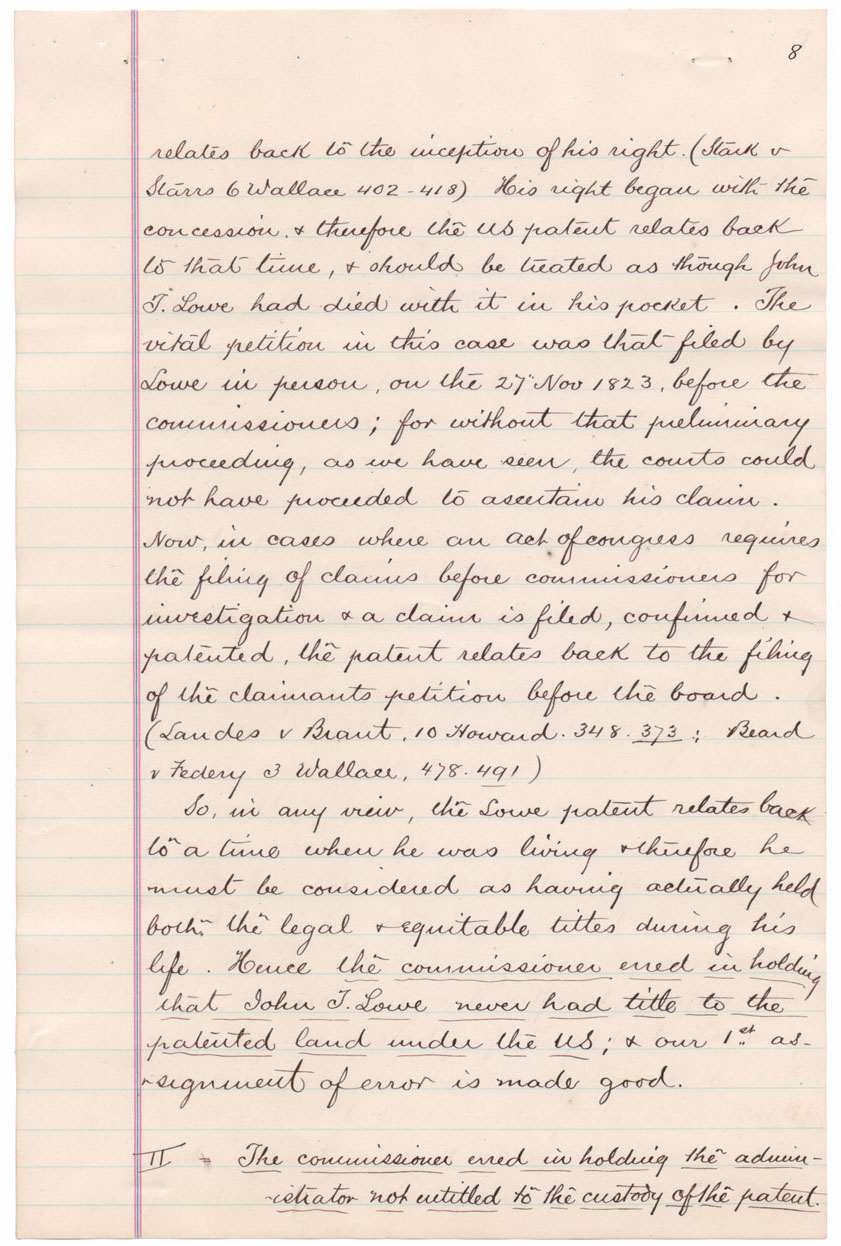 8
relates back to the inception of his right. (Stark v
Starrs 6 Wallace 402-418) His right began with the
concession. & therefore the US patent relates back
to that time, & should be treated as though John
T. Lowe had died with it in his pocket. The
vital petition in this case was that filed by
Lowe in person, on the 27" Nov 1823, before the
commissioners; for without that preliminary
proceeding, as we have seen, the courts could
not have proceeded to ascertain his claim.
Now, in cases where an act of congress requires
the filing of claims before commissioners for
investigation & a claim is filed, confirmed &
patented, the patent relates back to the filing
of the claimants petition before the board.
(Landes v Brant, 10 Howard. 348. 373; Beard
v Federy 3 Wallace, 478. 491)
So, in any view, the Lowe patent relates back
to a time when he was living & therefore he
must be considered as having actually held
both the legal & equitable titles during his
life. Hence the commissioner erred in holding
that John T. Lowe never had title to the
patented land under the US; & our 1st as-
-signment of error is made good.
II - The commissioner erred in holding the admin-
-istrator not entitled to the custody of the patent.